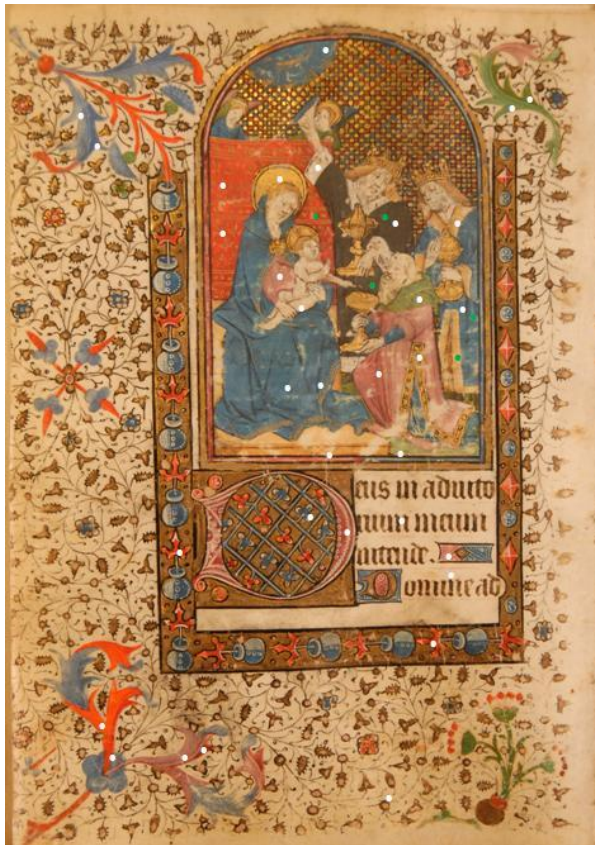 Deus in adiuto
rium meum
intende.
Domine ad